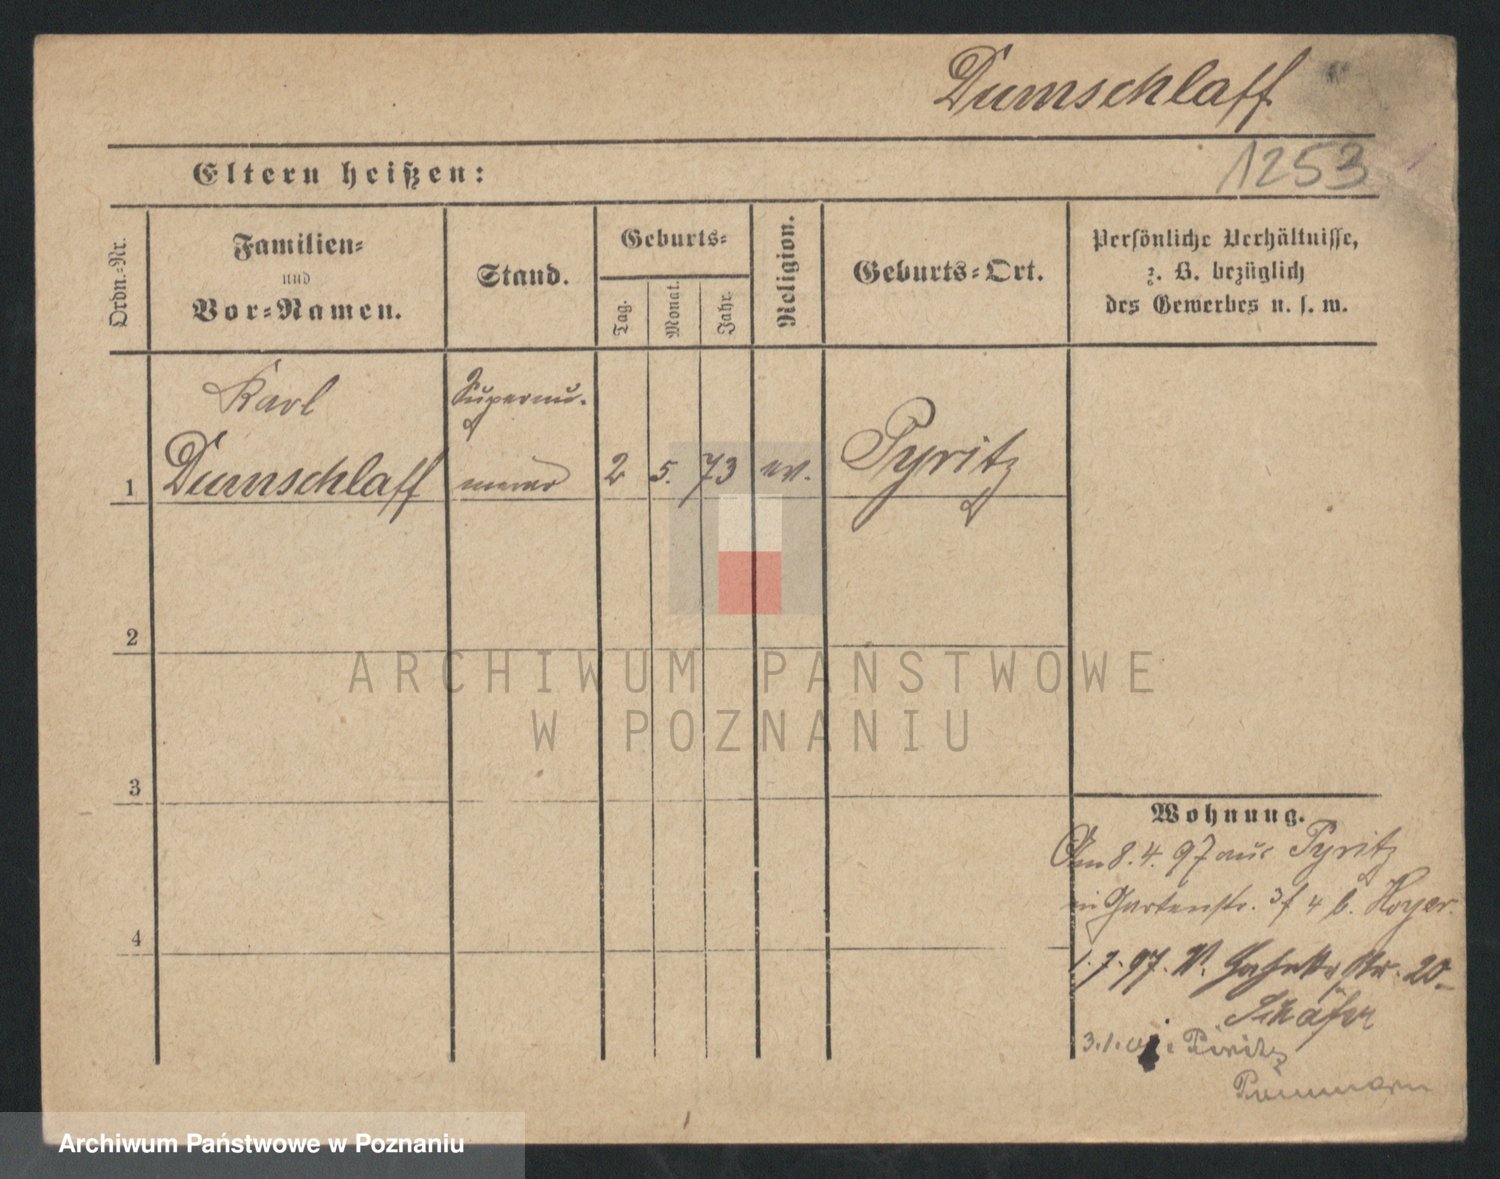 Dumschlaff
1253
Eltern heißen:
Ordn.-Nr.
Familien-
und
Vor-Namen.
Stand.
Geburts-
Tag.
Monat.
Jahr.
Religion.
Geburts-Ort.
Persönliche Verhältnisse,
z. B. bezüglich
des Gewerbes u. s. w.
Karl
Supernu-
1 Dumschlaff merar 2 5. 73 ev. Pyritz
2
ARCHIWUM PAŃSTWOWE
W POZNANIU
3
Wohnung.
Am 8.4.97 aus Pyritz
in Gartenstr. 3f 4 b. Hoyer.
4
1.7.97. V. str. 20
Schäfer
3.1. Piritz
Pommern
Archiwum Państwowe w Poznaniu